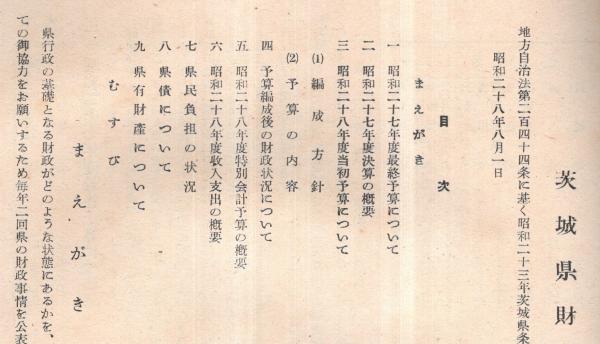 茨城県財
地方自治法第二百四十四条に基く昭和二十三年茨城県条
昭和二十八年八月一日
目次
まえがき
一 昭和二十七年度最終予算について
二 昭和二十七年度決算の概要
三 昭和二十八年度当初予算について
(1) 編成方針
(2) 予算の内容
四 予算編成後の財政状況について
五 昭和二十八年度特別会計予算の概要
六 昭和二十八年度収入支出の概要
七 県民負担の状況
八 県債について
九 県有財産について
むすび
まえがき
県行政の基礎となる財政がどのような状態にあるかを、
ての御協力をお願いするため毎年二回県の財政事情を公表